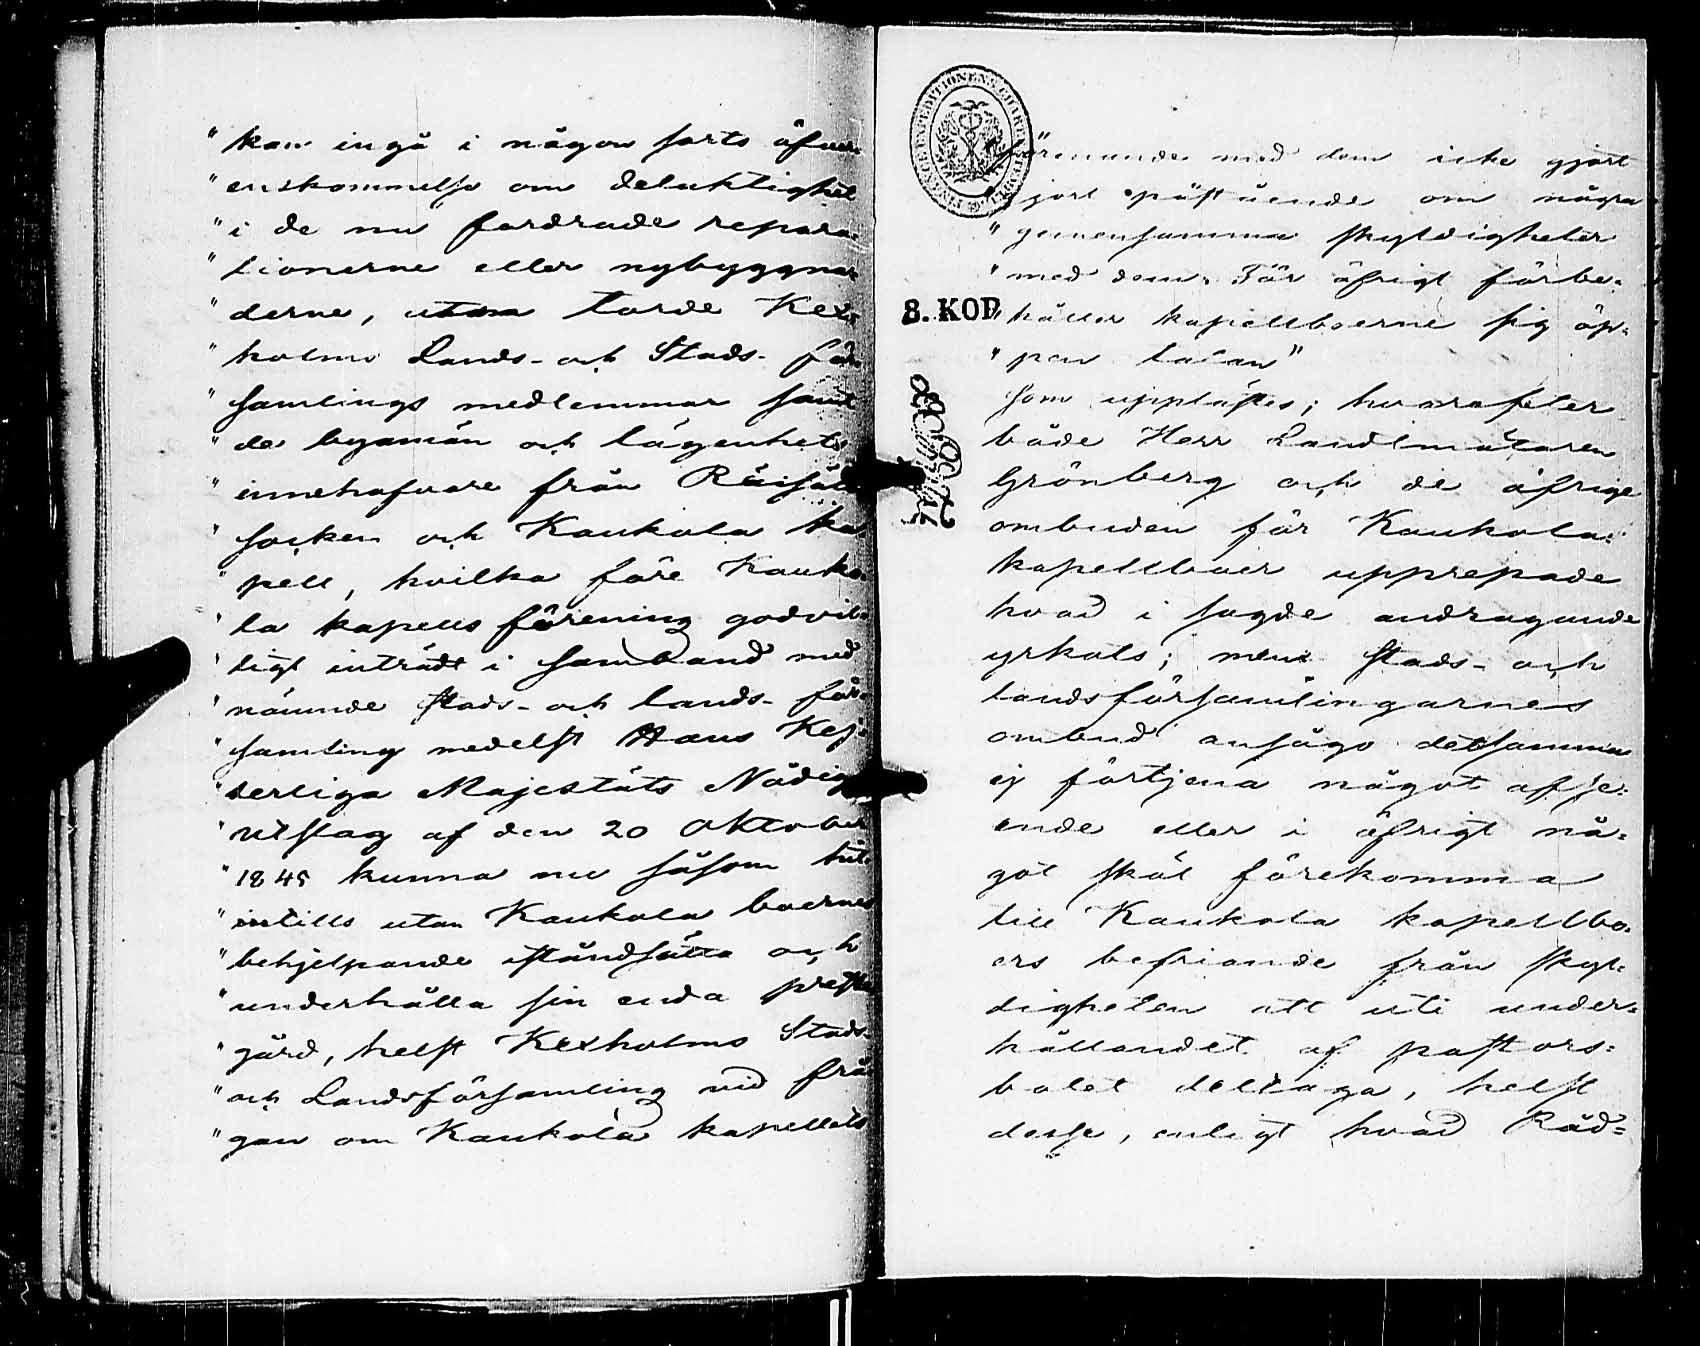 " kan ingå i någon sorts öfver
" enskommelse om delaktighet
" i de nu fordrade repara-
" tionerne eller nybyggna-
" derne, utan torde Kex-
" holms Lands- och Stads- för-
" samlings medlemmar samt
" de byamän och lägenhets
" innehafvare från Räisälä
" socken och Kaukola ka-
" pell, hvilka före Kauko-
" la kapells förening godvil-
" ligt inträdt i samband med
" nämnde stads- och lands- för-
" samling medelst Hans Kej-
" serliga Majestäts Nådiga
" utslag af den 20 Oktober
" 1845 kunna nu såsom hit-
" intills utan Kaukola boernes
" behjelpande iståndsätta och
" underhålla sin enda prest-
" gård, helst Kexholms Stads-
" och Landsförsamling vid frå-
" gan om Kaukola kapellets
" förenande med dem icke gjort
" gjort påstående om några
" gemensamma skyldigheter
" med dem. För öfrigt förbe-
8. KOP.
" håller kapellboerne sig öp-
" pen talan"
som upplästes; hvarefter
både Herr Landtmätaren
Grönberg och de öfrige
ombuden för Kaukola-
kapellboer upprepade
hvad i sagde andragande
yrkats; men Stads- och
landsförsamlingarnes
ombud ansågo detsamma
ej förtjena något afse-
ende eller i öfrigt nå-
got skäl förekomma
till Kaukola kapellbo-
ers befriande från skyl-
digheten att uti under-
hållandet af pastors-
bolet deltaga, helst
desse, enligt hvad Råd-